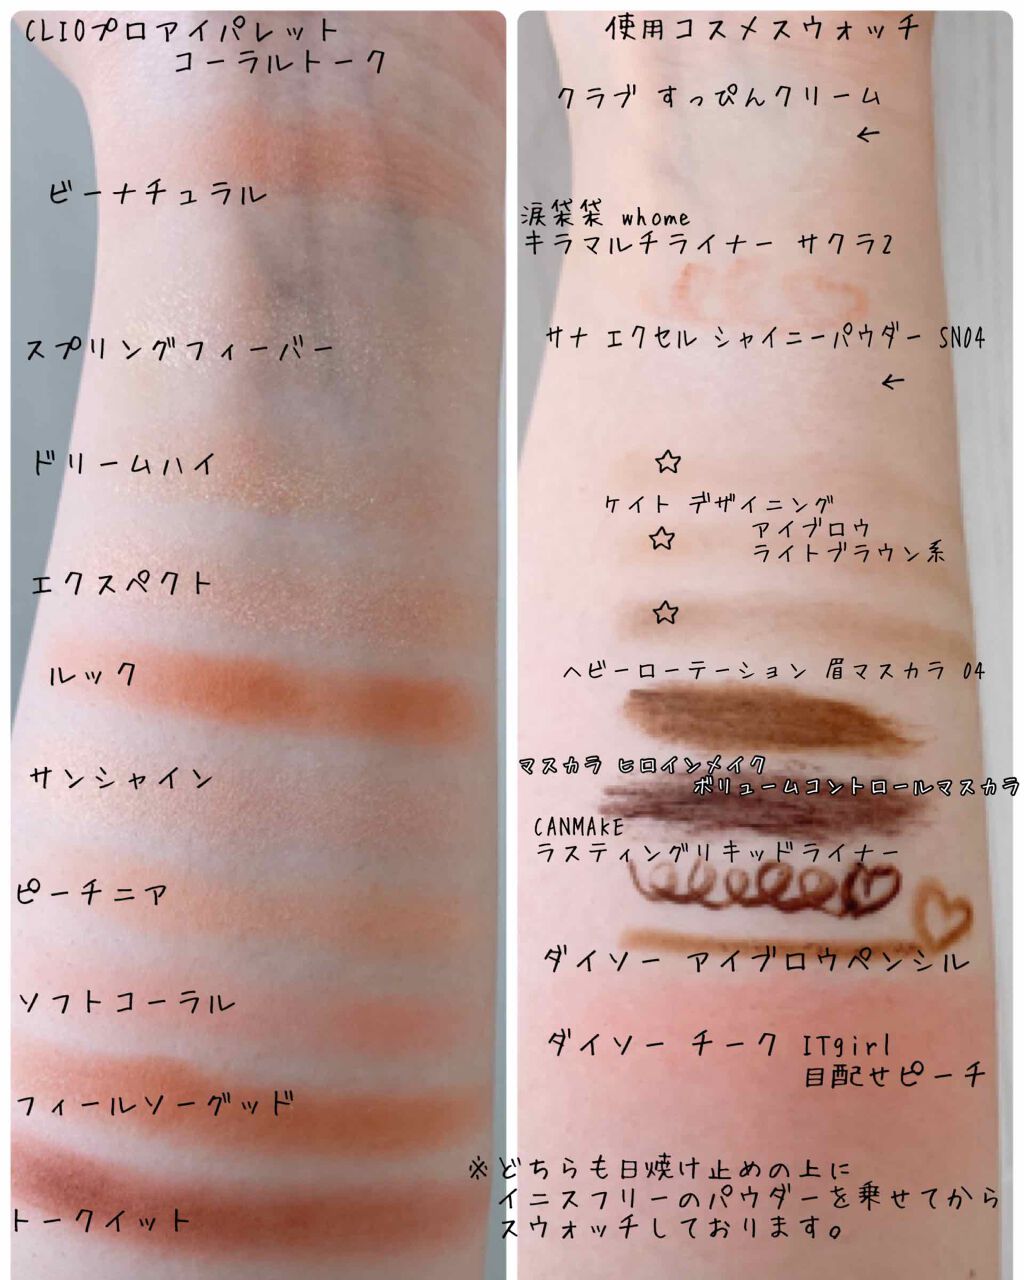 CLIOプロアイパレット
コーラルトーク
ビーナチュラル
スプリングフィーバー
ドリームハイ
エクスペクト
ルック
サンシャイン
ピーチニア
ソフトコーラル
フィールソーグッド
トークイット
使用コスメスウォッチ
クラブ すっぴんクリーム
←
涙袋袋 whome
キラマルチライナー サクラ2
サナ エクセル シャイニーパウダー SN04
←
☆
ケイト デザイニング
アイブロウ
☆
ライトブラウン系
☆
ヘビーローテーション 眉マスカラ 04
マスカラ ヒロインメイク
ボリュームコントロールマスカラ
CANMAKE
ラスティングリキッドライナー
ダイソー アイブロウペンシル
ダイソー チーク ITgirl
目配せピーチ
※どちらも日焼け止めの上に
イニスフリーのパウダーを乗せてから
スウォッチしております。